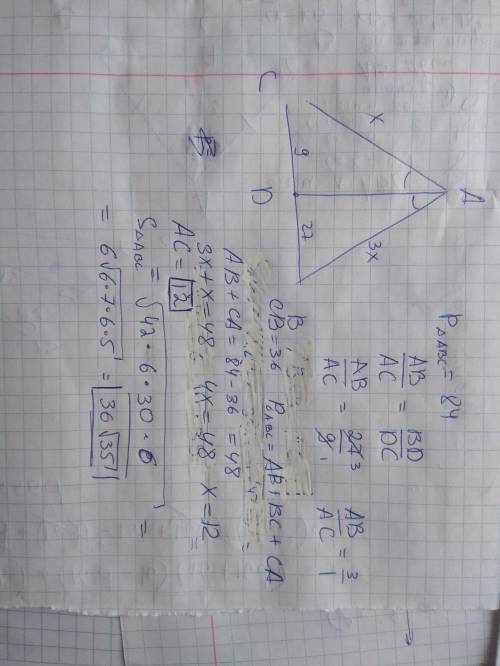 A
x
3x
C
9
D
27
B
P△ABC = 84
AB/AC = BD/DC
AB/AC = 27 3/9 1
AB/AC = 3/1
CB = 36 P△ABC = AB + BC + CA
AB + CA = 84 - 36 = 48
3x + x = 48, 4x = 48 x = 12
AC = 12
S△ABC = √42・6・30・6 =
= 6√6・7・6・5 = 36√35